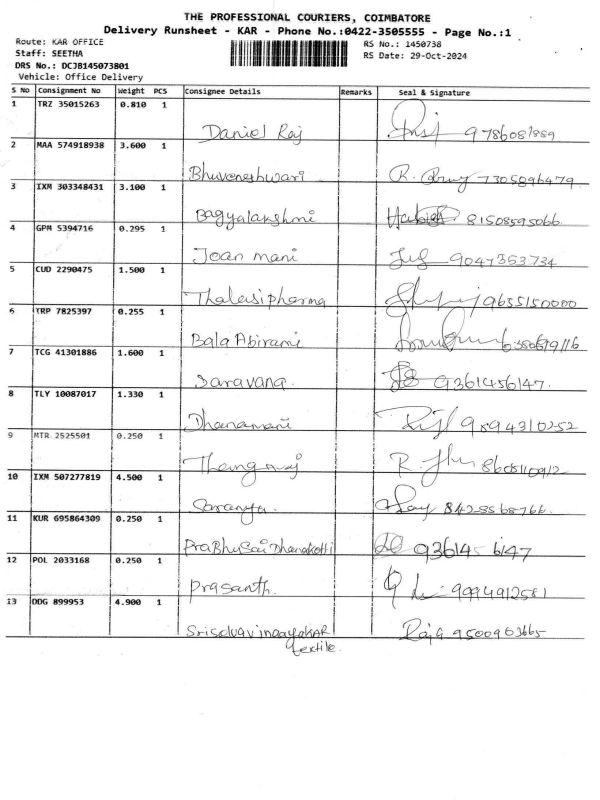 THE PROFESSIONAL COURIERS, COIMBATORE
Delivery Runsheet - KAR - Phone No.:0422-3505555 - Page No.:1
Route: KAR OFFICE
RS No.: 1450738
Staff: SEETHA
RS Date: 29-Oct-2024
DRS No.: DCJB145073801
Vehicle: Office Delivery
S No Consignment No Weight PCS Consignee Details Remarks Seal & Signature
1 TRZ 35015263 0.810 1
Daniel Raj
2 MAA 574918938 3.600 1
Bhuvaneshwari 7305896479
3 IXM 303348431 3.100 1
Bagyalakshmi 81508595066
4 GPM 5394716 0.295 1
Joan mani 9047353734
5 CUD 2290475 1.500 1
Thalasipharma 9655150000
6 TRP 7825397 0.255 1
Bala Abirami
7 TCG 41301886 1.600 1
Saravana 9361456147
8 TLY 10087017 1.330 1
Dhanamani 9894310252
9 MTR 2525501 0.250 1
Thangaraj
10 IXM 507277819 4.500 1
Saranya
11 KUR 695864309 0.250 1
PraBhu Sai Dhanakotti 936145 6147
12 POL 2033168 0.250 1
Prasanth. 9994912581
13 ODG 899953 4.900 1
Raja 9500963665
textile.